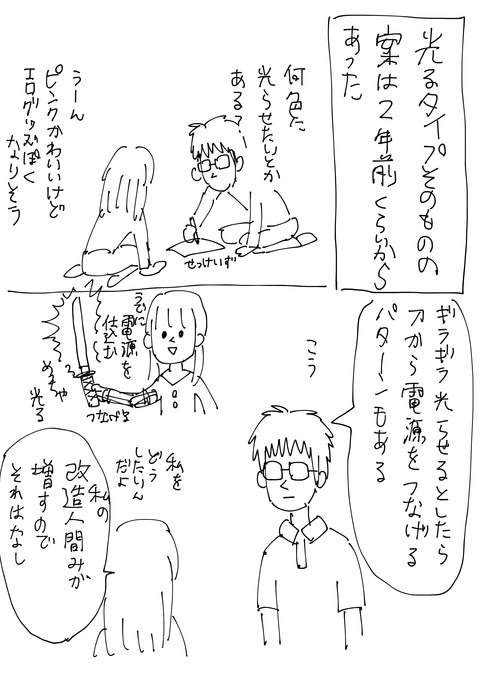 光るタイプそのものの
案は2年前くらいから
あった
何色に
光らせたいとか
ある?
うーん
ピンクかわいいけど
エログッズぽく
なりそう
せっけいず
ギラギラ光らせるとしたら
刀から電源をつなげる
パターンもある
こう
うでに
電源を
仕込む
つなげる
めちゃ
光る
私を
どう
したいん
だよ
私の
改造人間みが
増すので
それはなし